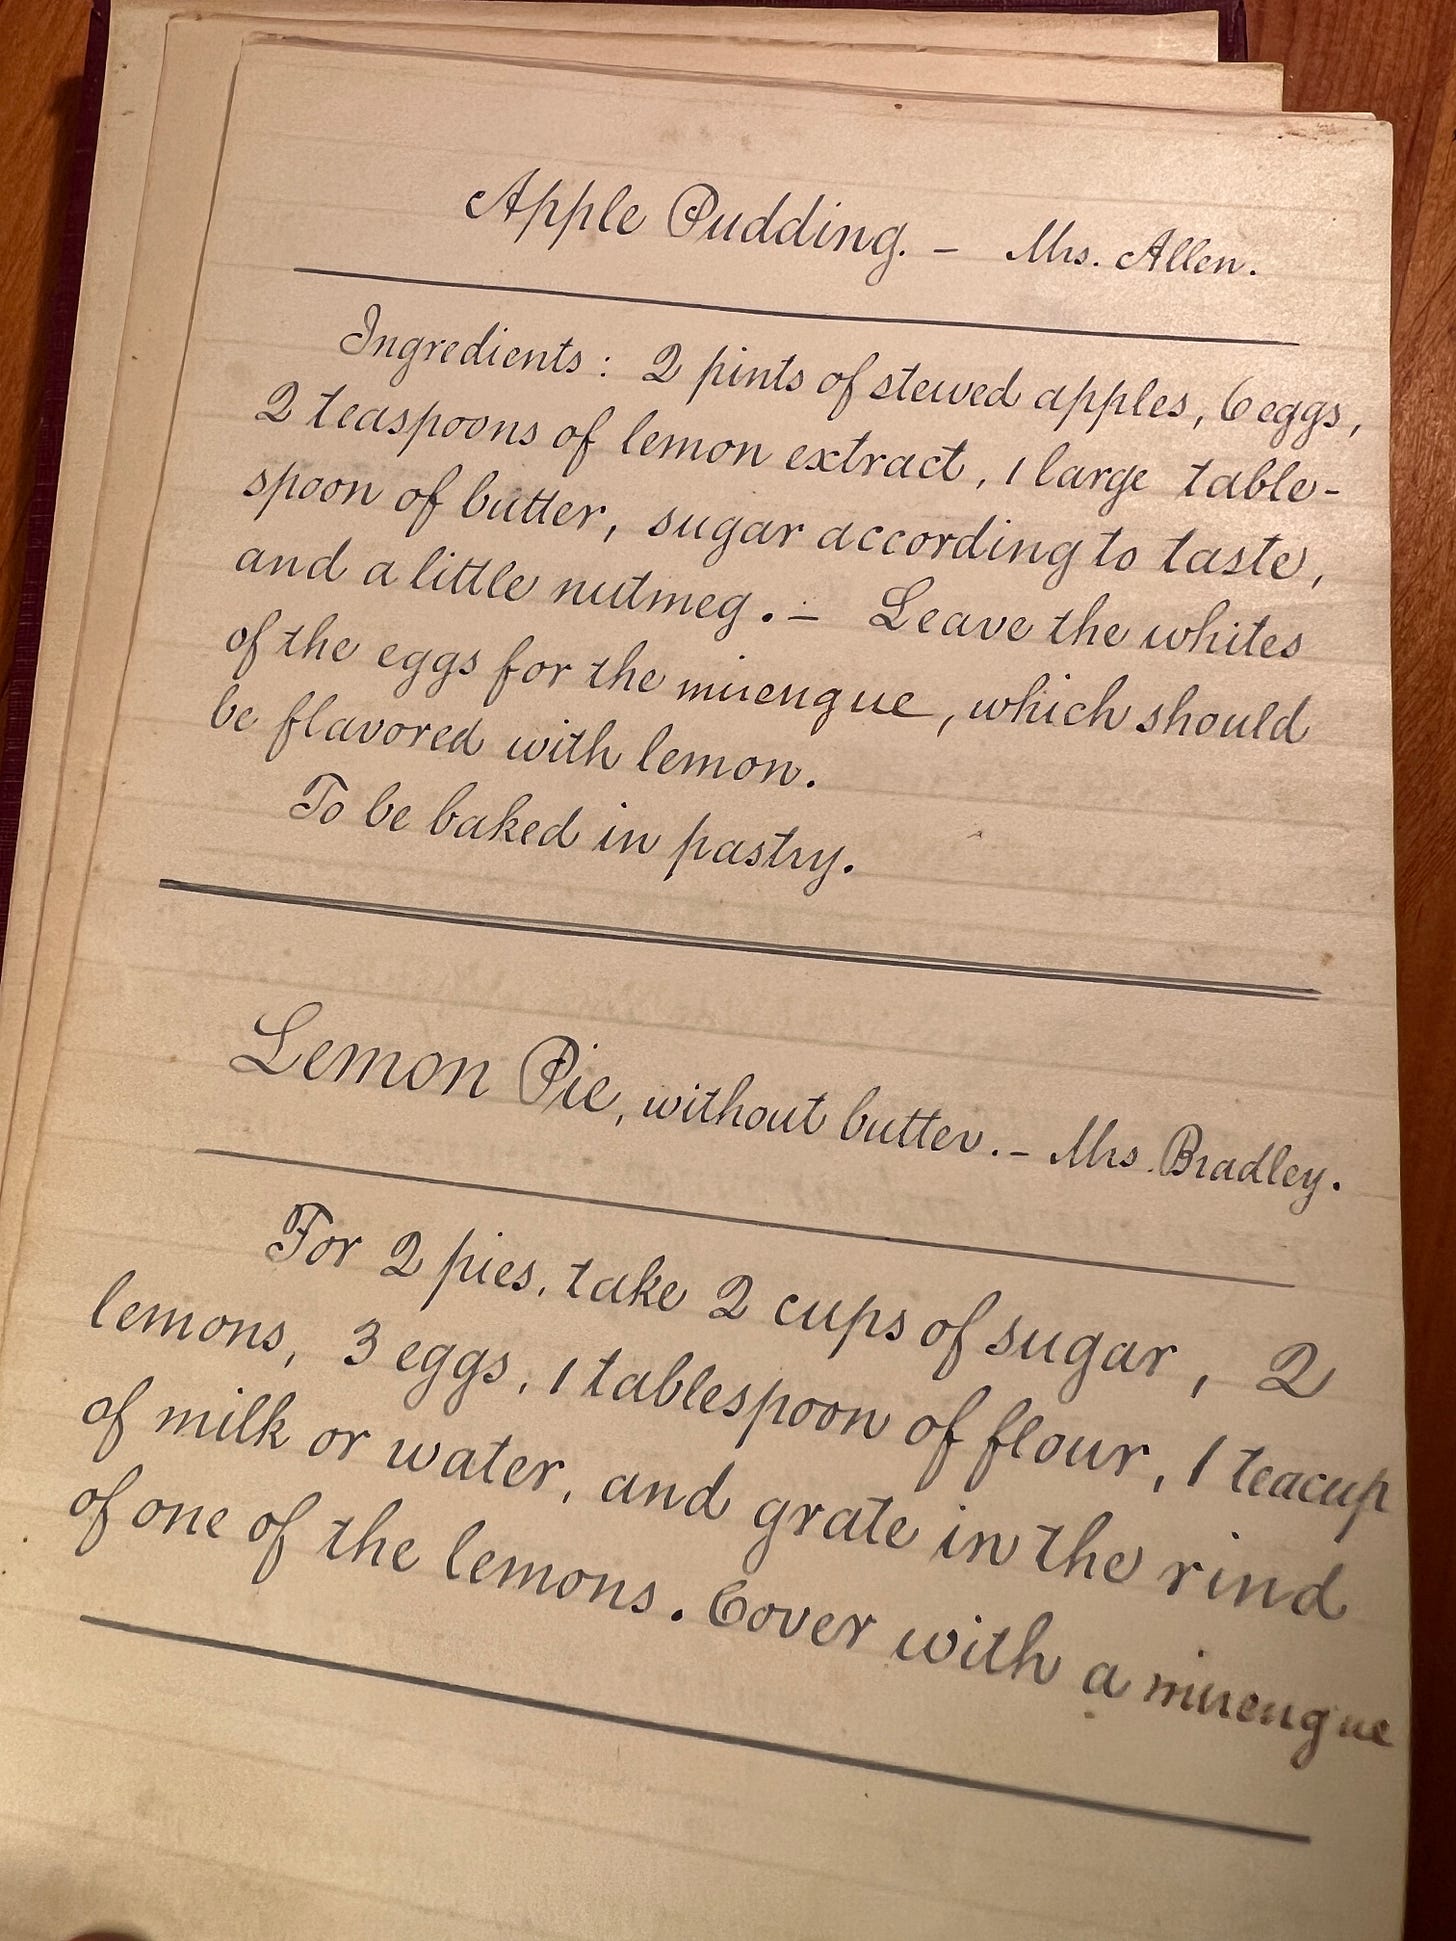 Apple Pudding. - Mrs. Allen.
Ingredients: 2 pints of stewed apples, 6 eggs,
2 teaspoons of lemon extract, 1 large table-
spoon of butter, sugar according to taste,
and a little nutmeg. - Leave the whites
of the eggs for the mirengue, which should
be flavored with lemon.
To be baked in pastry.
Lemon Pie, without butter. - Mrs. Bradley.
For 2 pies, take 2 cups of sugar, 2
lemons, 3 eggs, 1 tablespoon of flour, 1 teacup
of milk or water, and grate in the rind
of one of the lemons. Cover with a mirengue